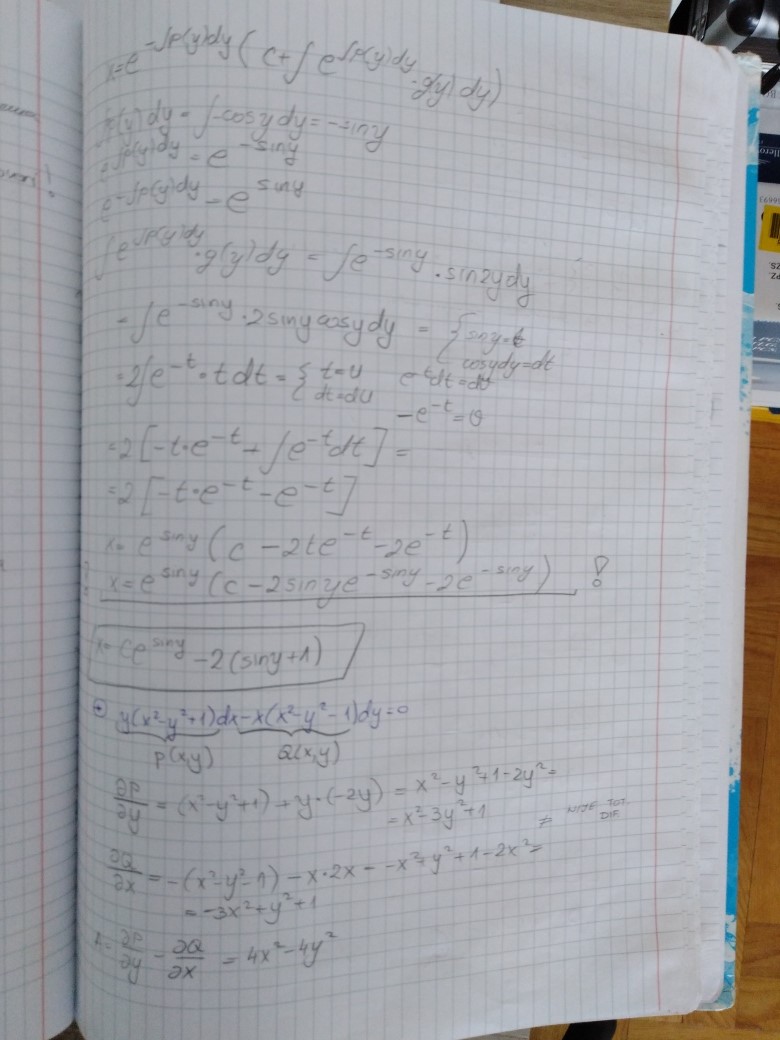 x=e^{-∫p(y)dy} (c+∫e^{∫p(y)dy}·g(y)dy)
∫p(y)dy = ∫-cosydy = -siny
e^{∫p(y)dy} = e^{-siny}
e^{-∫p(y)dy} = e^{siny}
∫e^{∫p(y)dy}·g(y)dy = ∫e^{-siny}·sin2ydy
= ∫e^{-siny}·2sinycosydy = { siny=t
cosydy=dt
=2∫e^{-t}·tdt = { t=u e^{-t}dt=dv
dt=du
-e^{-t}=v
=2[-t·e^{-t}+∫e^{-t}dt] =
=2[-t·e^{-t}-e^{-t}]
x= e^{siny}(c-2te^{-t}-2e^{-t})
x=e^{siny}(c-2sinye^{-siny}-2e^{-siny}) !
x= ce^{siny}-2(siny+1)
y(x²-y²+1)dx-x(x²-y²-1)dy=0
P(x,y) Q(x,y)
∂P/∂y = (x²-y²+1)+y·(-2y) = x²-y²+1-2y²=
= x²-3y²+1 ≠ NIJE TOT. DIF.
∂Q/∂x = -(x²-y²-1)-x·2x = -x²+y²+1-2x²=
= -3x²+y²+1
∂P/∂y - ∂Q/∂x = 4x²-4y²